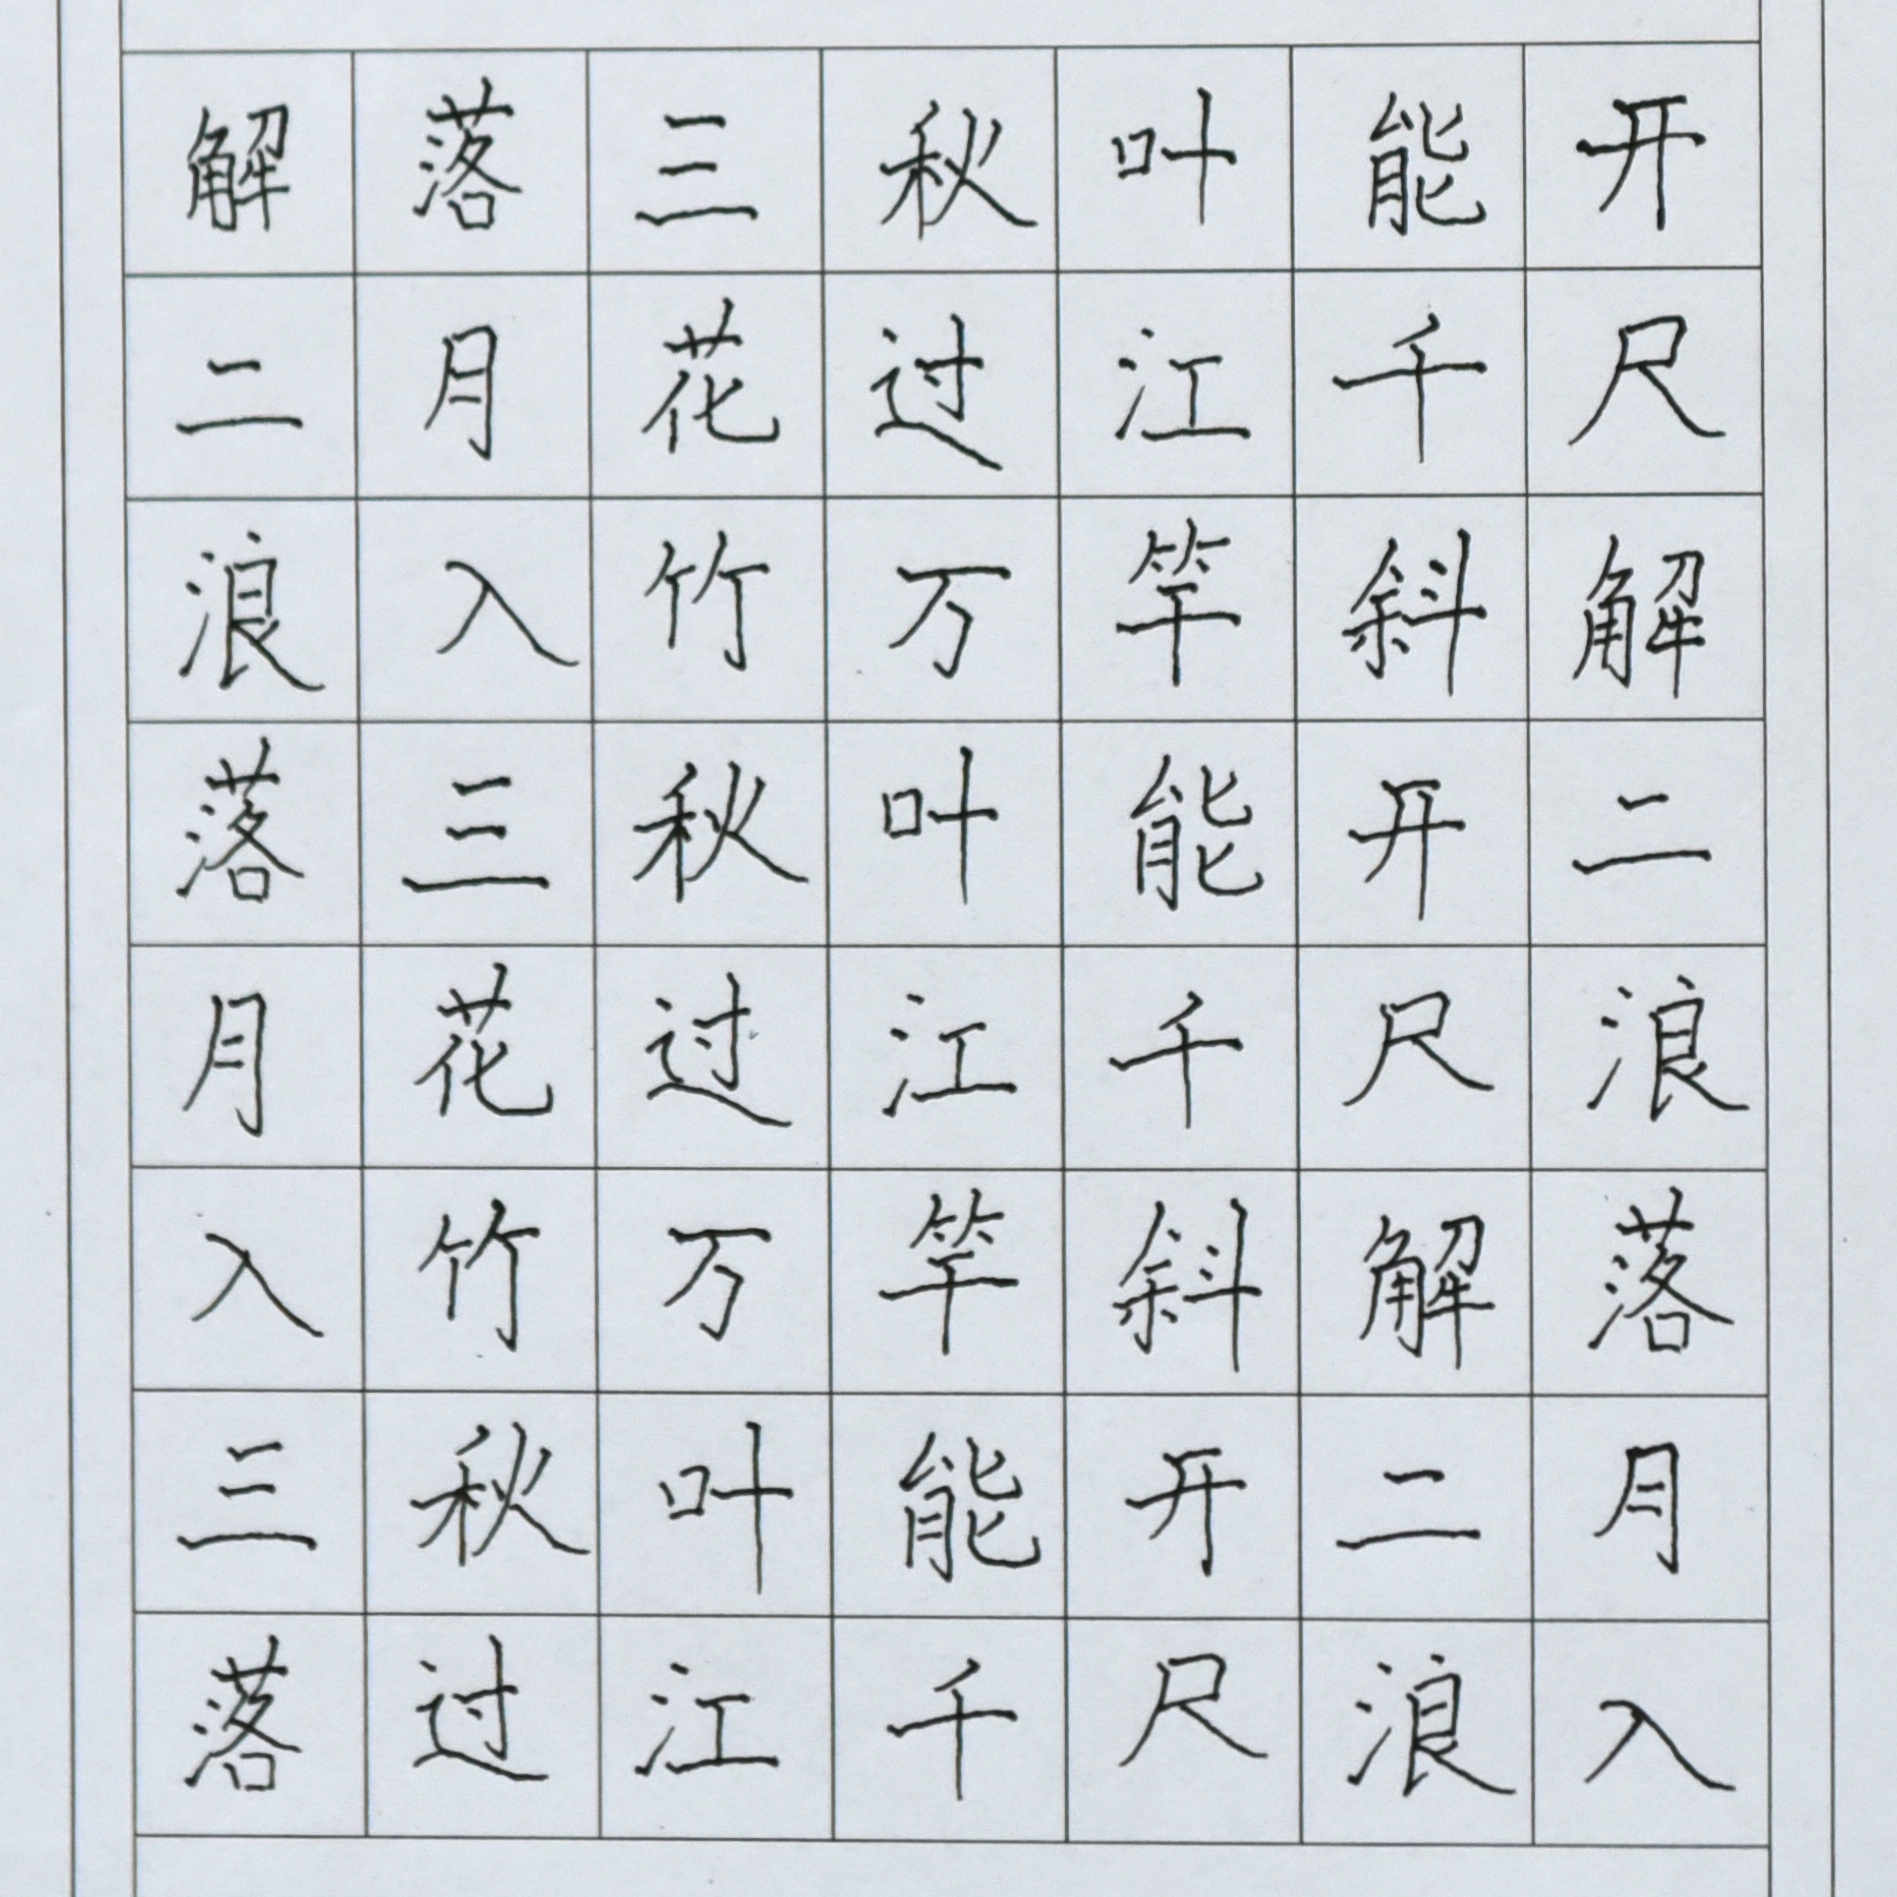 解落三秋叶能开
二月花过江千尺
浪入竹万竿斜解
落三秋叶能开二
月花过江千尺浪
入竹万竿斜解落
三秋叶能开二月
落过江千尺浪入